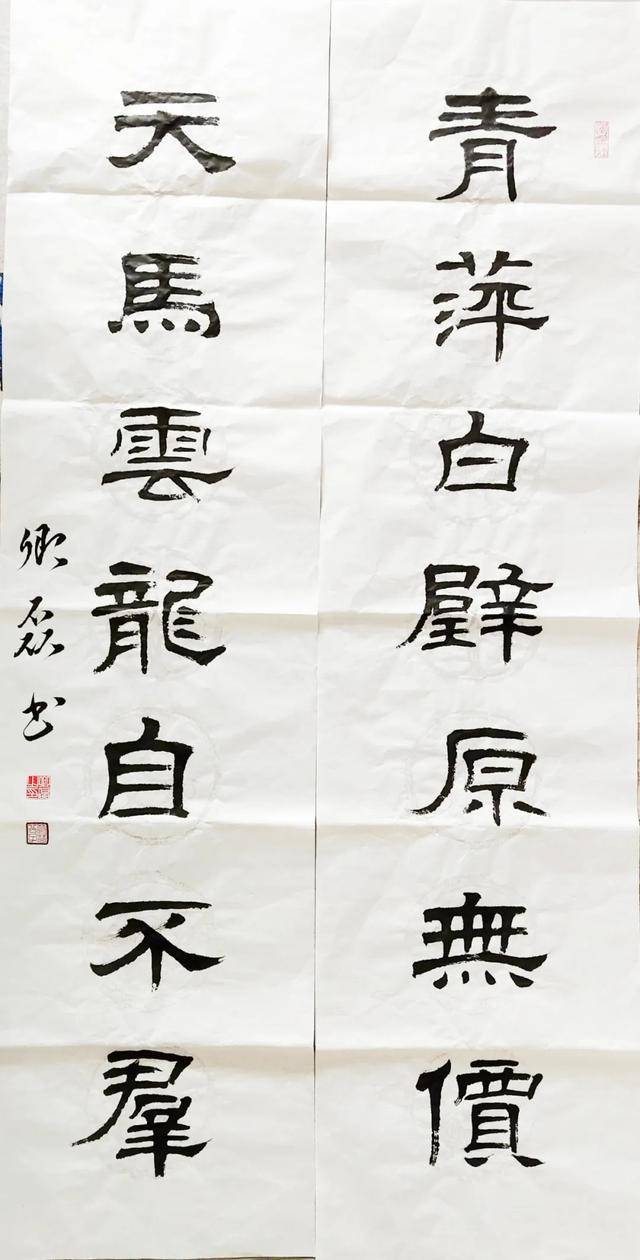 青萍白璧原無價
天馬雲龍自不羣
卿磊书